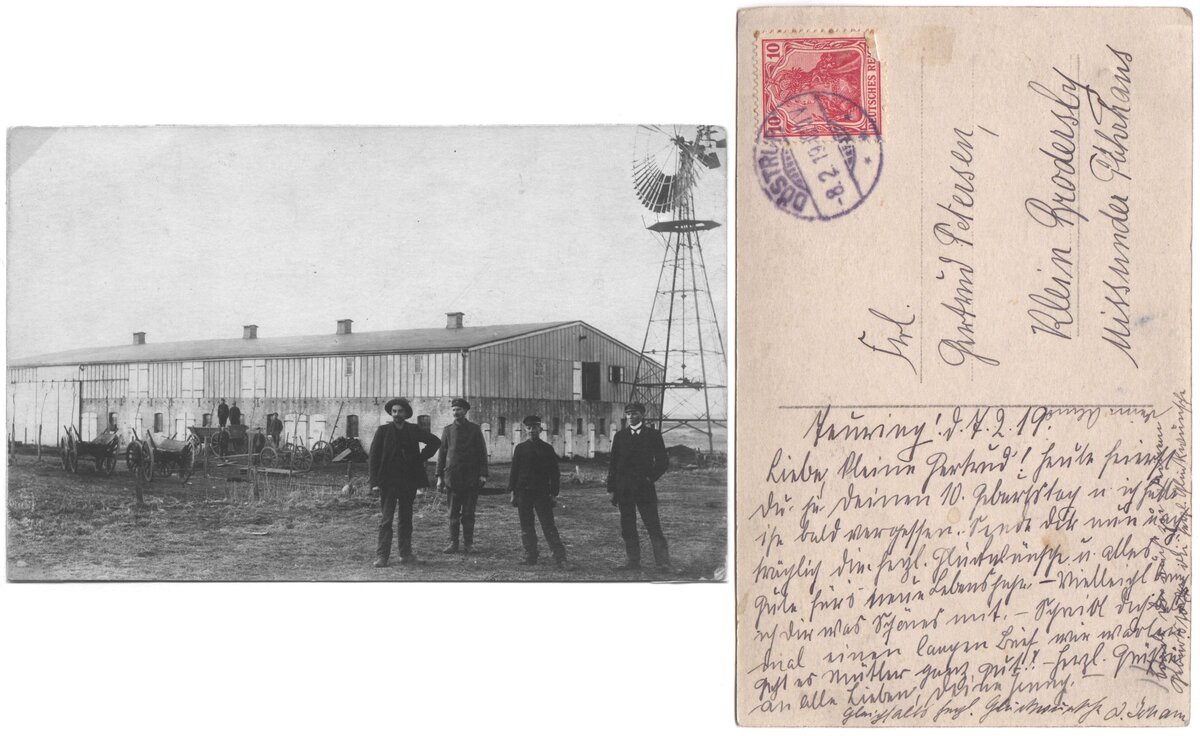 10
10
DEUTSCHES REICH
-8.2.19
Frl.
Gertrud Petersen,
Klein Brodersby
Missunder Fährhaus
d. 7. 2. 19.
Liebe, kleine Gertrud! Heute feierst
Du ja Deinen 10. Geburtstag u. ich hätte
ihn bald vergessen. Sende Dir nun
träglich die herzl. Glückwünsche u. alles
Gute fürs neue Lebensjahr. – Vielleicht
ich Dir was Schönes mit. – Schreibt doch
mal einen langen Brief, wir warten
Geht es Mutter ganz gut? – Herzl. Grüße
an alle Lieben, Deine
Gleichfalls herzl. Glückwünsche